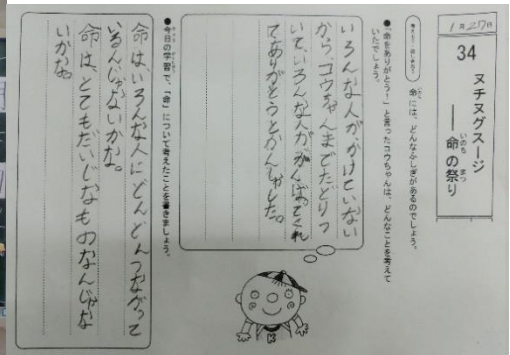 1月27日
34 ヌチヌグスージ
――命の祭り
いのち まつ
命には、どんなふしぎがあるのでしょう。
●「命をありがとう!」と言ったコウちゃんは、どんなことを考えて
いたでしょう。
いろんな人が、かけていない
から、コウちゃんまでたどりつ
いて、いろんな人が、がんばってくれ
てありがとうとかんしゃした。
●今日の学習で、「命」について考えたことを書きましょう。
命は、いろんな人にどんどんつながって
いるんじゃないかな。
命は、とてもだいじなものなんじゃな
いかな。